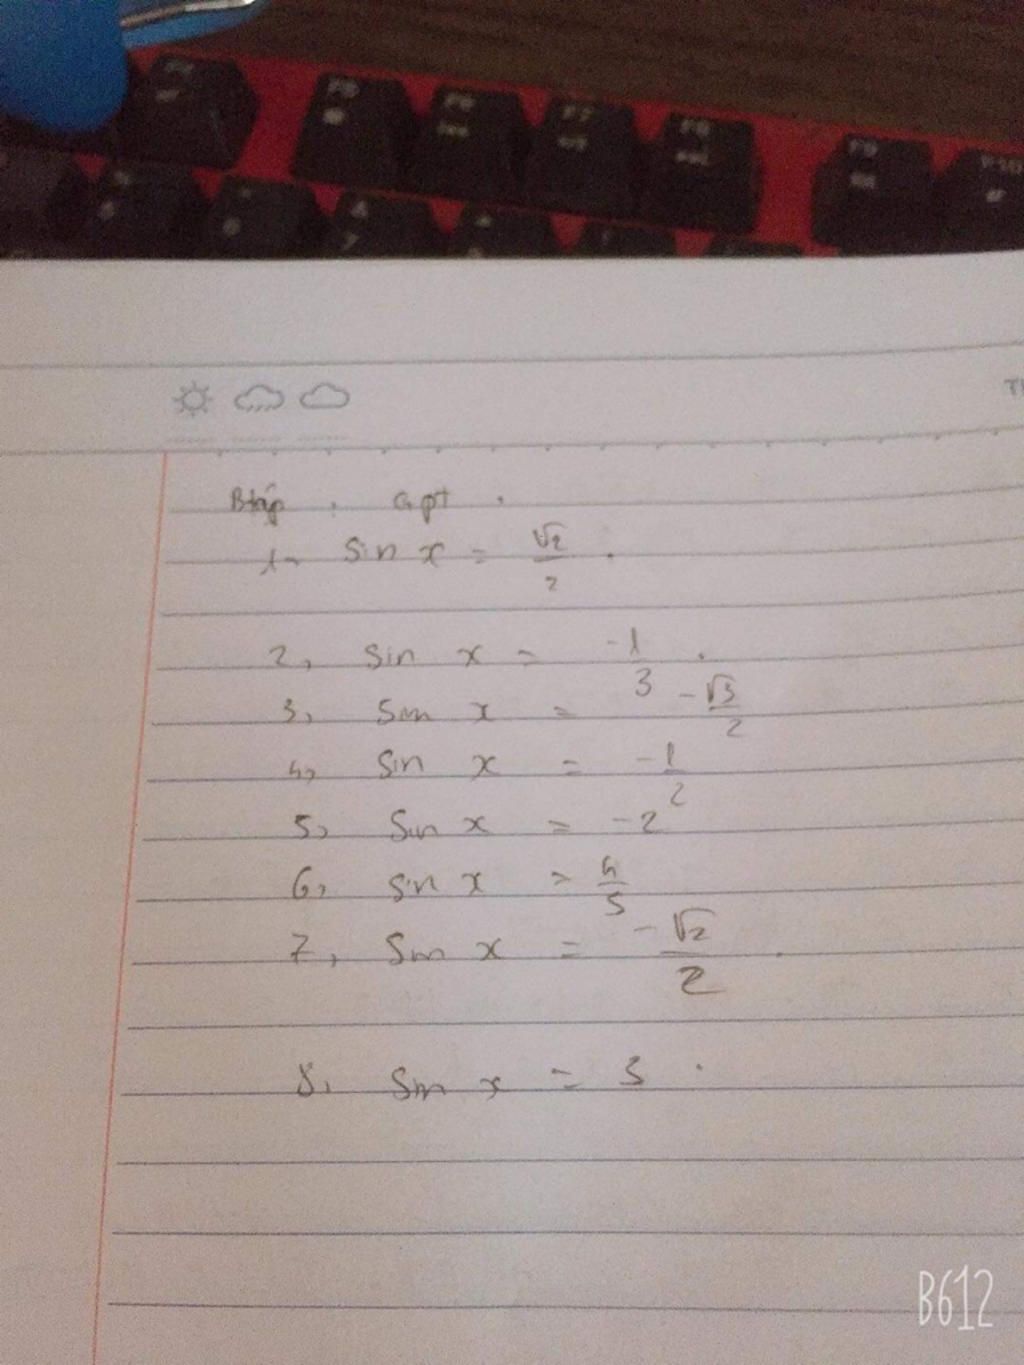 F5
F6
F7
F8
F9
F10
5
6
7
Btập : Gpt .
1- sin x = √2/2 .
2, sin x = -1/3 .
3, sin x = -√3/2
4, sin x = -1/2
5, sin x = -2
6, sin x = 4/5
7, sin x = -√2/2 .
8, sin x = 3 .
B612